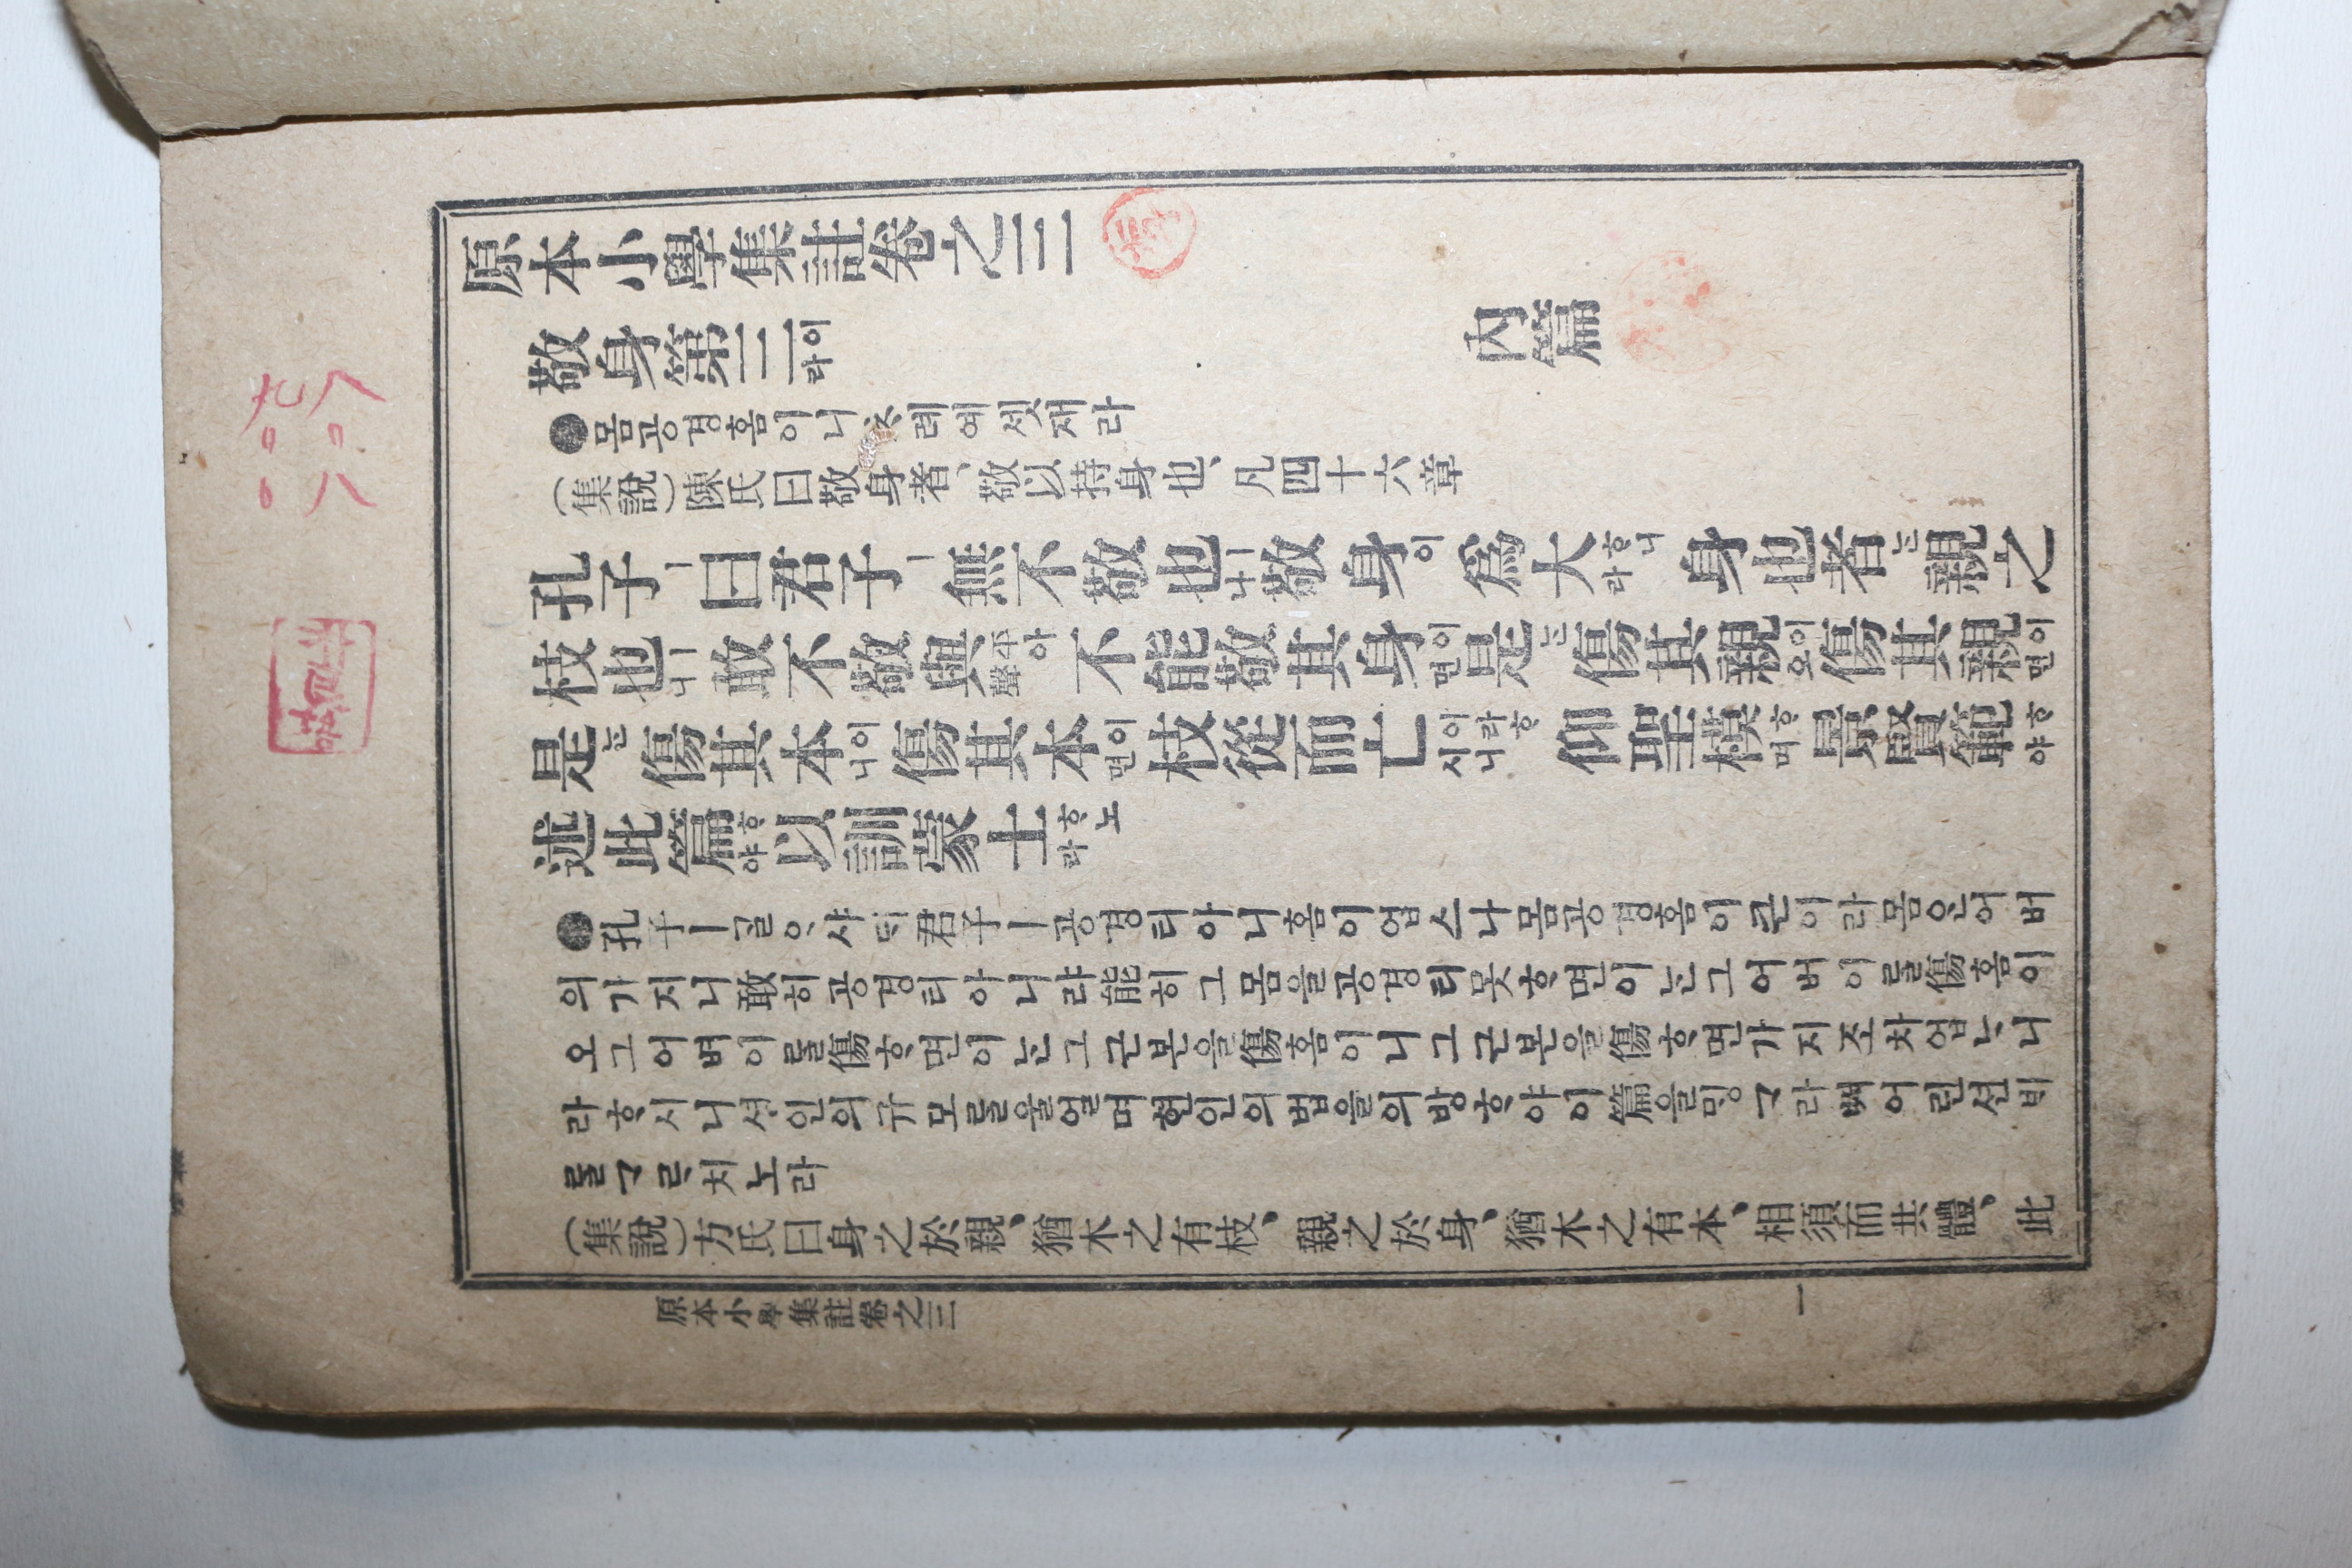 原本小學集註卷之三
內篇
敬身第三이라
●몸공경홈이니ᄎᆞ례예셋재라
(集說)陳氏曰敬身者、敬以持身也、凡四十六章
孔子ㅣ曰君子ㅣ無不敬也ㅣ나敬身이爲大ᄒᆞ니라身也者ᄂᆞᆫ親之
枝也ㅣ니敢不敬與아不能敬其身이면是ᄂᆞᆫ傷其親이오傷其親이면
是ᄂᆞᆫ傷其本이니傷其本이면枝從而亡이라ᄒᆞ시니仰聖模ᄒᆞ며景賢範ᄒᆞ야
述此篇ᄒᆞ야以訓蒙士ᄒᆞ노라
●孔子ㅣᄀᆞᆯᄋᆞ샤ᄃᆡ君子ㅣ공경티아니홈이업스나몸공경홈이큰이라몸은어버
의가지니敢히공경티아니랴能히그몸을공경티못ᄒᆞ면이ᄂᆞᆫ그어버이ᄅᆞᆯ傷홈이
오그어버이ᄅᆞᆯ傷ᄒᆞ면이ᄂᆞᆫ그근본을傷홈이니그근본을傷ᄒᆞ면가지조차업ᄂᆞ니
라ᄒᆞ시니셩인의규모ᄅᆞᆯ울얼며현인의법을의방ᄒᆞ야이篇을ᄆᆡᆼᄀᆞ라ᄡᅥ어린션ᄇᆡ
ᄅᆞᆯᄀᆞᄅᆞ치노라
(集說)方氏曰身之於親、猶木之有枝、親之於身、猶木之有本、相須而共體、此
原本小學集註卷之三
一